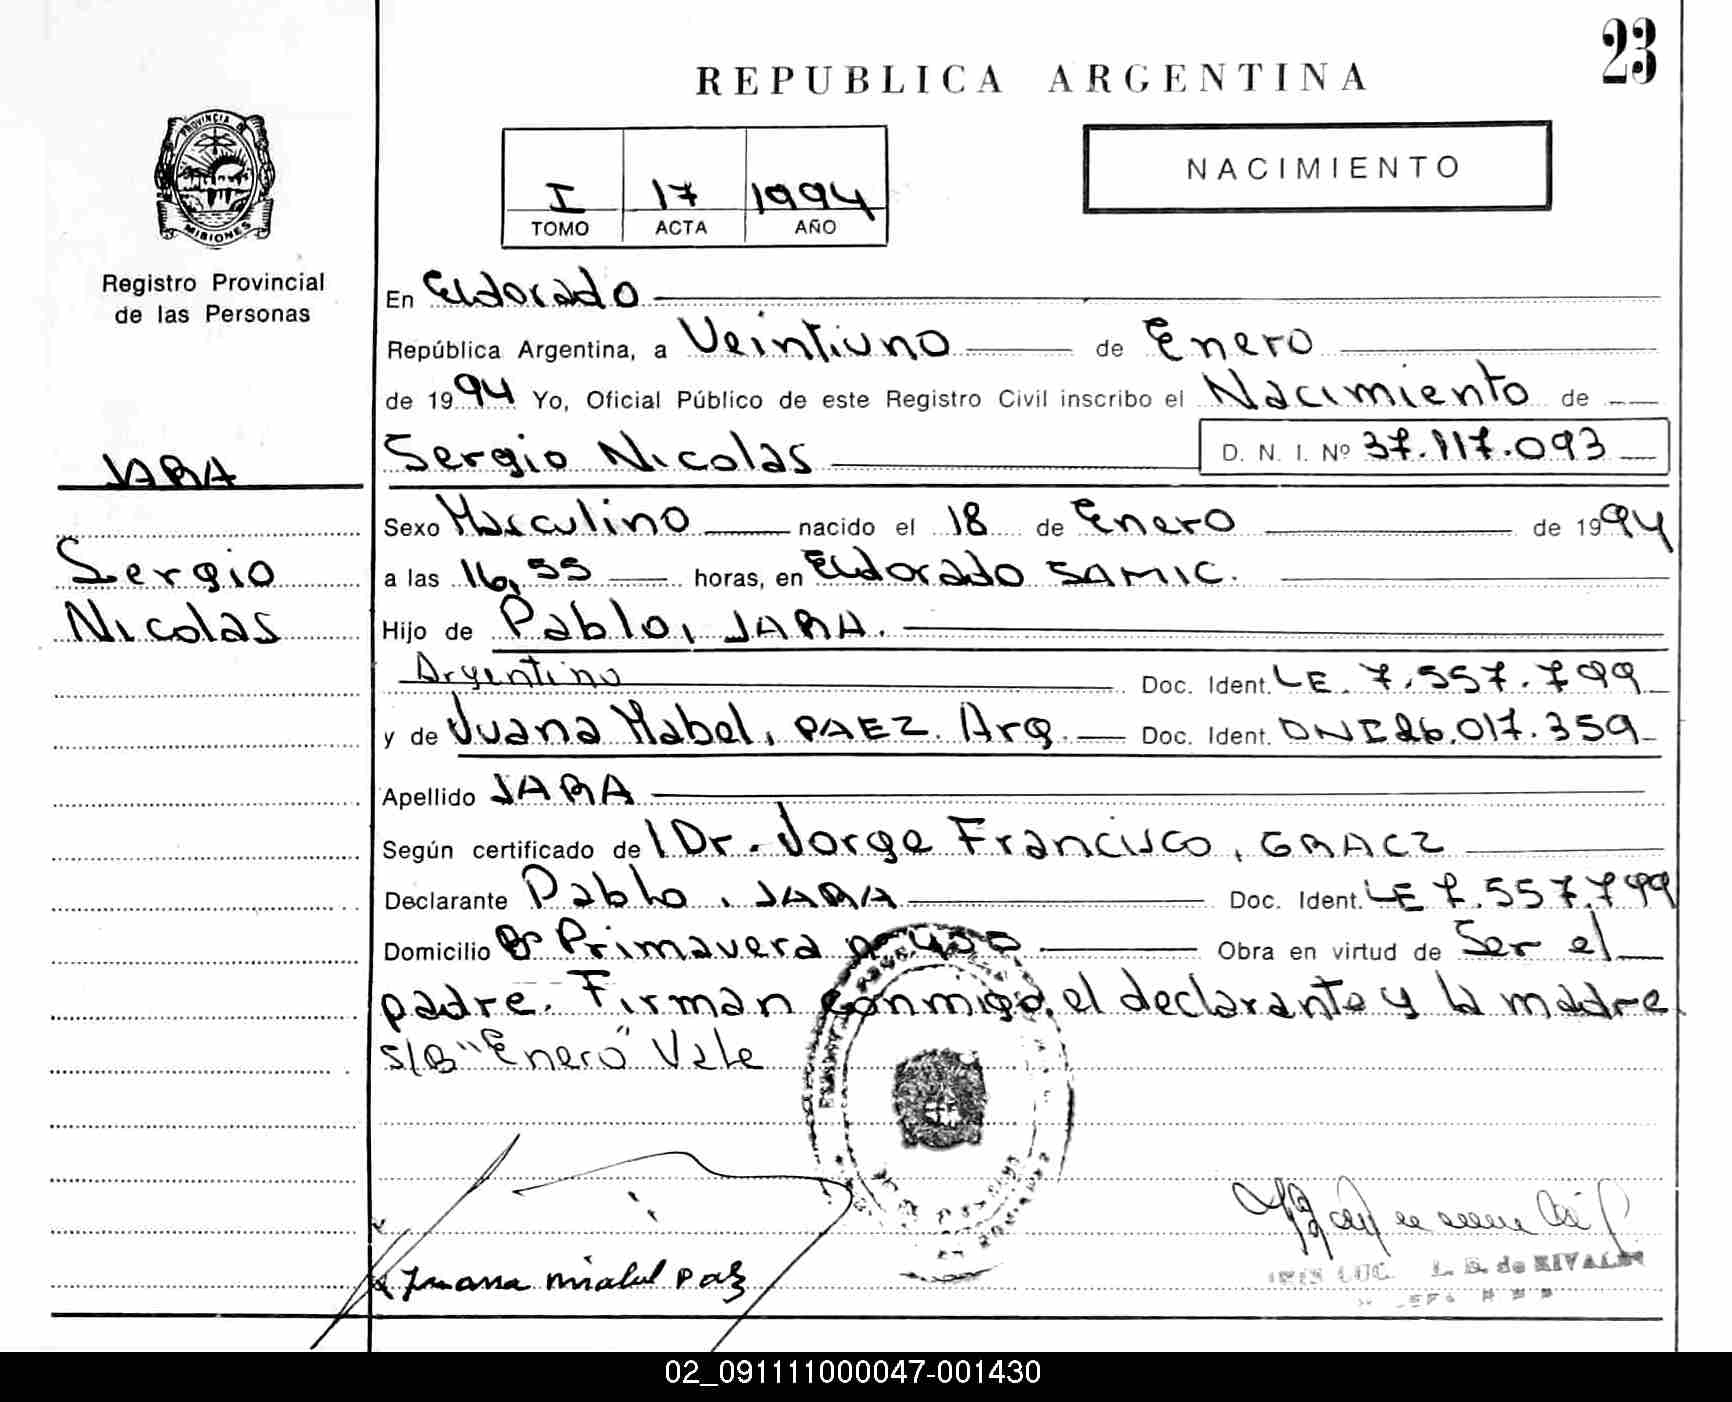 23
REPUBLICA ARGENTINA
PROVINCIA DE
MISIONES
Registro Provincial
de las Personas
I 17 1994
TOMO ACTA AÑO
NACIMIENTO
En Eldorado
República Argentina, a Veintiuno de Enero
de 1994 Yo, Oficial Público de este Registro Civil inscribo el Nacimiento de
Sergio Nicolas D. N. I. Nº 37.117.093
JARA
Sergio
Nicolas
Sexo Masculino nacido el 18 de Enero de 1994
a las 16,55 horas, en Eldorado SAMIC.
Hijo de Pablo, JARA.
Argentino Doc. Ident. LE. 7.557.799
y de Juana Mabel, PAEZ. Arg. Doc. Ident. DNI 26.017.359
Apellido JARA
Según certificado de l Dr. Jorge Francisco, GRACZ
Declarante Pablo, JARA Doc. Ident. LE 7.557.799
Domicilio Bº Primavera nº 455 Obra en virtud de Ser el
padre. Firman conmigo, el declarante y la madre
S/B "Enero" Vale
Juana
L. B. de RIVALDI
02_091111000047-001430